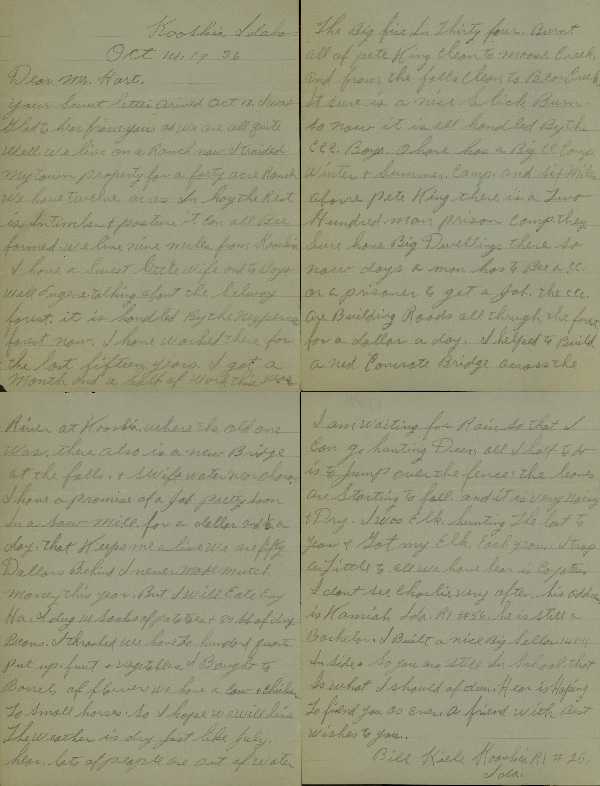 Kooskia Idaho
Oct 14. 1936
Dear Mr. Hart.
your lovet letter arived Oct 12. I was
Glad to hear from you as we are all quite
Well. We live on a Ranch now I traided
My town property for a forty acre Ranch
We have twelve acres in hay the Rest
is in timber & pasture it Can all Bee
farmed. we live nine miles from Kooskia
I have a Sweet little wife and to Boys
Well Eugene talking about the Selway
forest. it is handled By the
forest now. I have worked there for
the last fifteen years. I got a
Month and a half of work this year
The Big fire In Thirty four. Burnt
all of pete King Clean to Moose Creek.
and from the falls Clean to Bear Creek
it sure is a nice Slick Burn
so now it is all handled By the
C.C.C. Boys. Ohara has a Big CC Camp
Winter & Summer Camp. and six Miles
above Pete King there is a Two
Hundred man prison Camp they
sure have Big Dwellings there so
now days a man has to Bee a CC.
or a prisoner to get a Job. the CC.
are Building Roads all through the forest
for a dollar a day. I helped to Build
a ned Concrete bridge across the
River at Kooskia. where the old one
Was. there also is a new Bridge
at the falls. &
I have a promise of a Job pretty soon
in a saw mill for a dollar and a
day. that Keeps me a live we are fifty
Dollars Behind I never make mutch
money this year. But I will Eate hay
Ha. I dug sacks of potatoes & of dry
Beans. I thrashed we have to hundred quarts
put up. fruit & vegetables & I Bought to
Barrel of flower we have a Cow & chicken
To small horses. so I hope we will live
The Weather is dry Just like July.
hear. lots of people are out of water
I am waiting for Rain so that I
Can go hunting Deer. all I half to do
is to Jump over the fence. the leaves
are Starting to fall. and it is very Noisy
& Dry. I was Elk. hunting The last to
years & Got my Elk. Each year. I trap
a little to all we have hear is Coyotes
I dont see Charlie very often. his address
is Kamiah Ida. R1 #56. he is still a
Bachelor. I Built a nice Big Sellar
In side. so you are still In School that
Is what I should of dun. Hear is Hoping
To find you as ever. a friend with Best
wishes to you.
Bill Kiele Kooskia R1 # 26.
Ida.